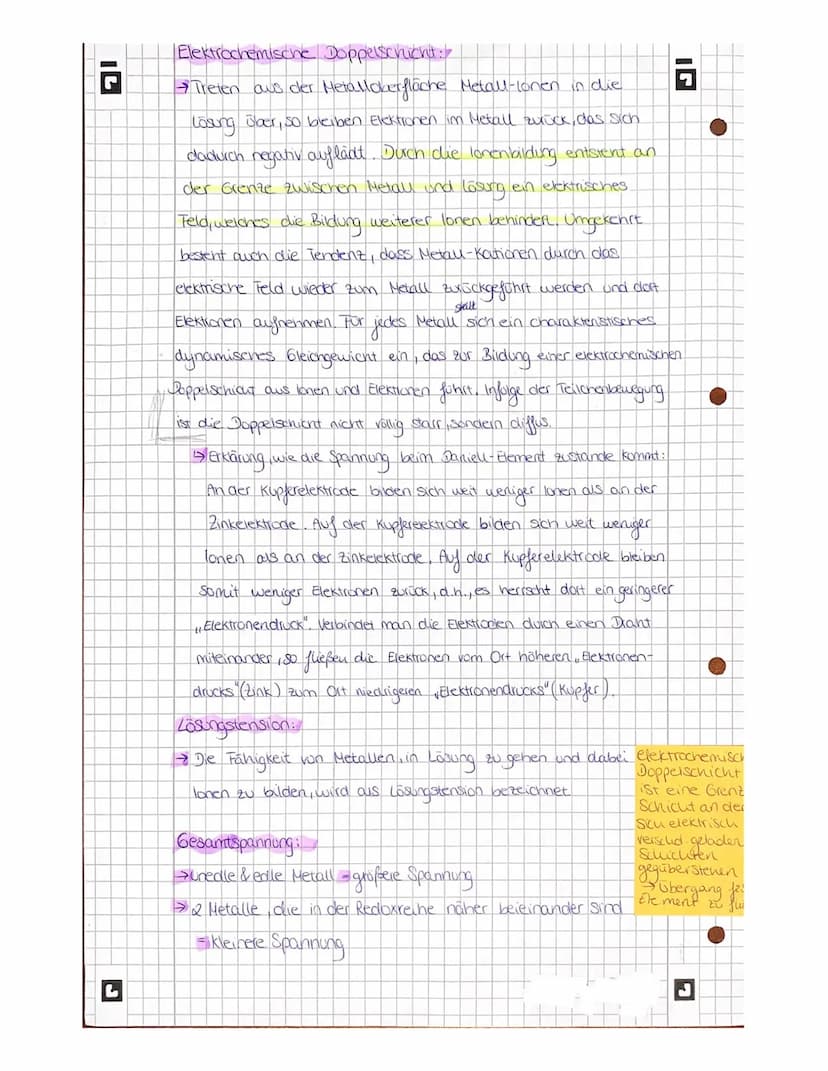 Elektrochemische Doppelschicht:
→ Treten aus der Metalloberfläche Metall-Ionen in die
Lösung über, so bleiben Elektronen im Metall zurück, das sich
dadurch negativ auflädt. Durch die Ionenbildung entsteht an
der Grenze zwischen Metall und Lösung ein elektrisches
Feld, welches die Bildung weiterer Ionen behindert. Umgekehrt
besteht auch die Tendenz, dass Metall-Kationen durch das
elektrische Feld wieder zum Metall zurückgeführt werden und dort
Elektronen aufnehmen. Für jedes Metall stellt sich ein charakteristisches
dynamisches Gleichgewicht ein, das zur Bildung einer elektrochemischen
Doppelschicht aus Ionen und Elektronen führt. Infolge der Teilchenbewegung
ist die Doppelschicht nicht völlig starr, sondern diffus.
↳ Erklärung, wie die Spannung beim Daniell-Element zustande kommt:
An der Kupferelektrode bilden sich weit weniger Ionen als an der
Zinkelektrode. Auf der Kupferelektrode bilden sich weit weniger
Ionen als an der Zinkelektrode. Auf der Kupferelektrode bleiben
somit weniger Elektronen zurück, d.h., es herrscht dort ein geringerer
„Elektronendruck". Verbindet man die Elektroden durch einen Draht
miteinander, so fließen die Elektronen vom Ort höheren „Elektronen-
drucks" (Zink) zum Ort niedrigeren „Elektronendrucks" (Kupfer).
Lösungstension:
→ Die Fähigkeit von Metallen, in Lösung zu gehen und dabei
Ionen zu bilden, wird als Lösungstension bezeichnet
Gesamtspannung:
→ Unedle & edle Metall = größere Spannung
→ 2 Metalle, die in der Redoxreihe näher beieinander sind
= kleinere Spannung
elektrochemisch
Doppelschicht
ist eine Grenz
Schicht an der
sich elektrisch
verschd. geladen
Schichten
gegüberstehen
→ Übergang fes
Element zu flü